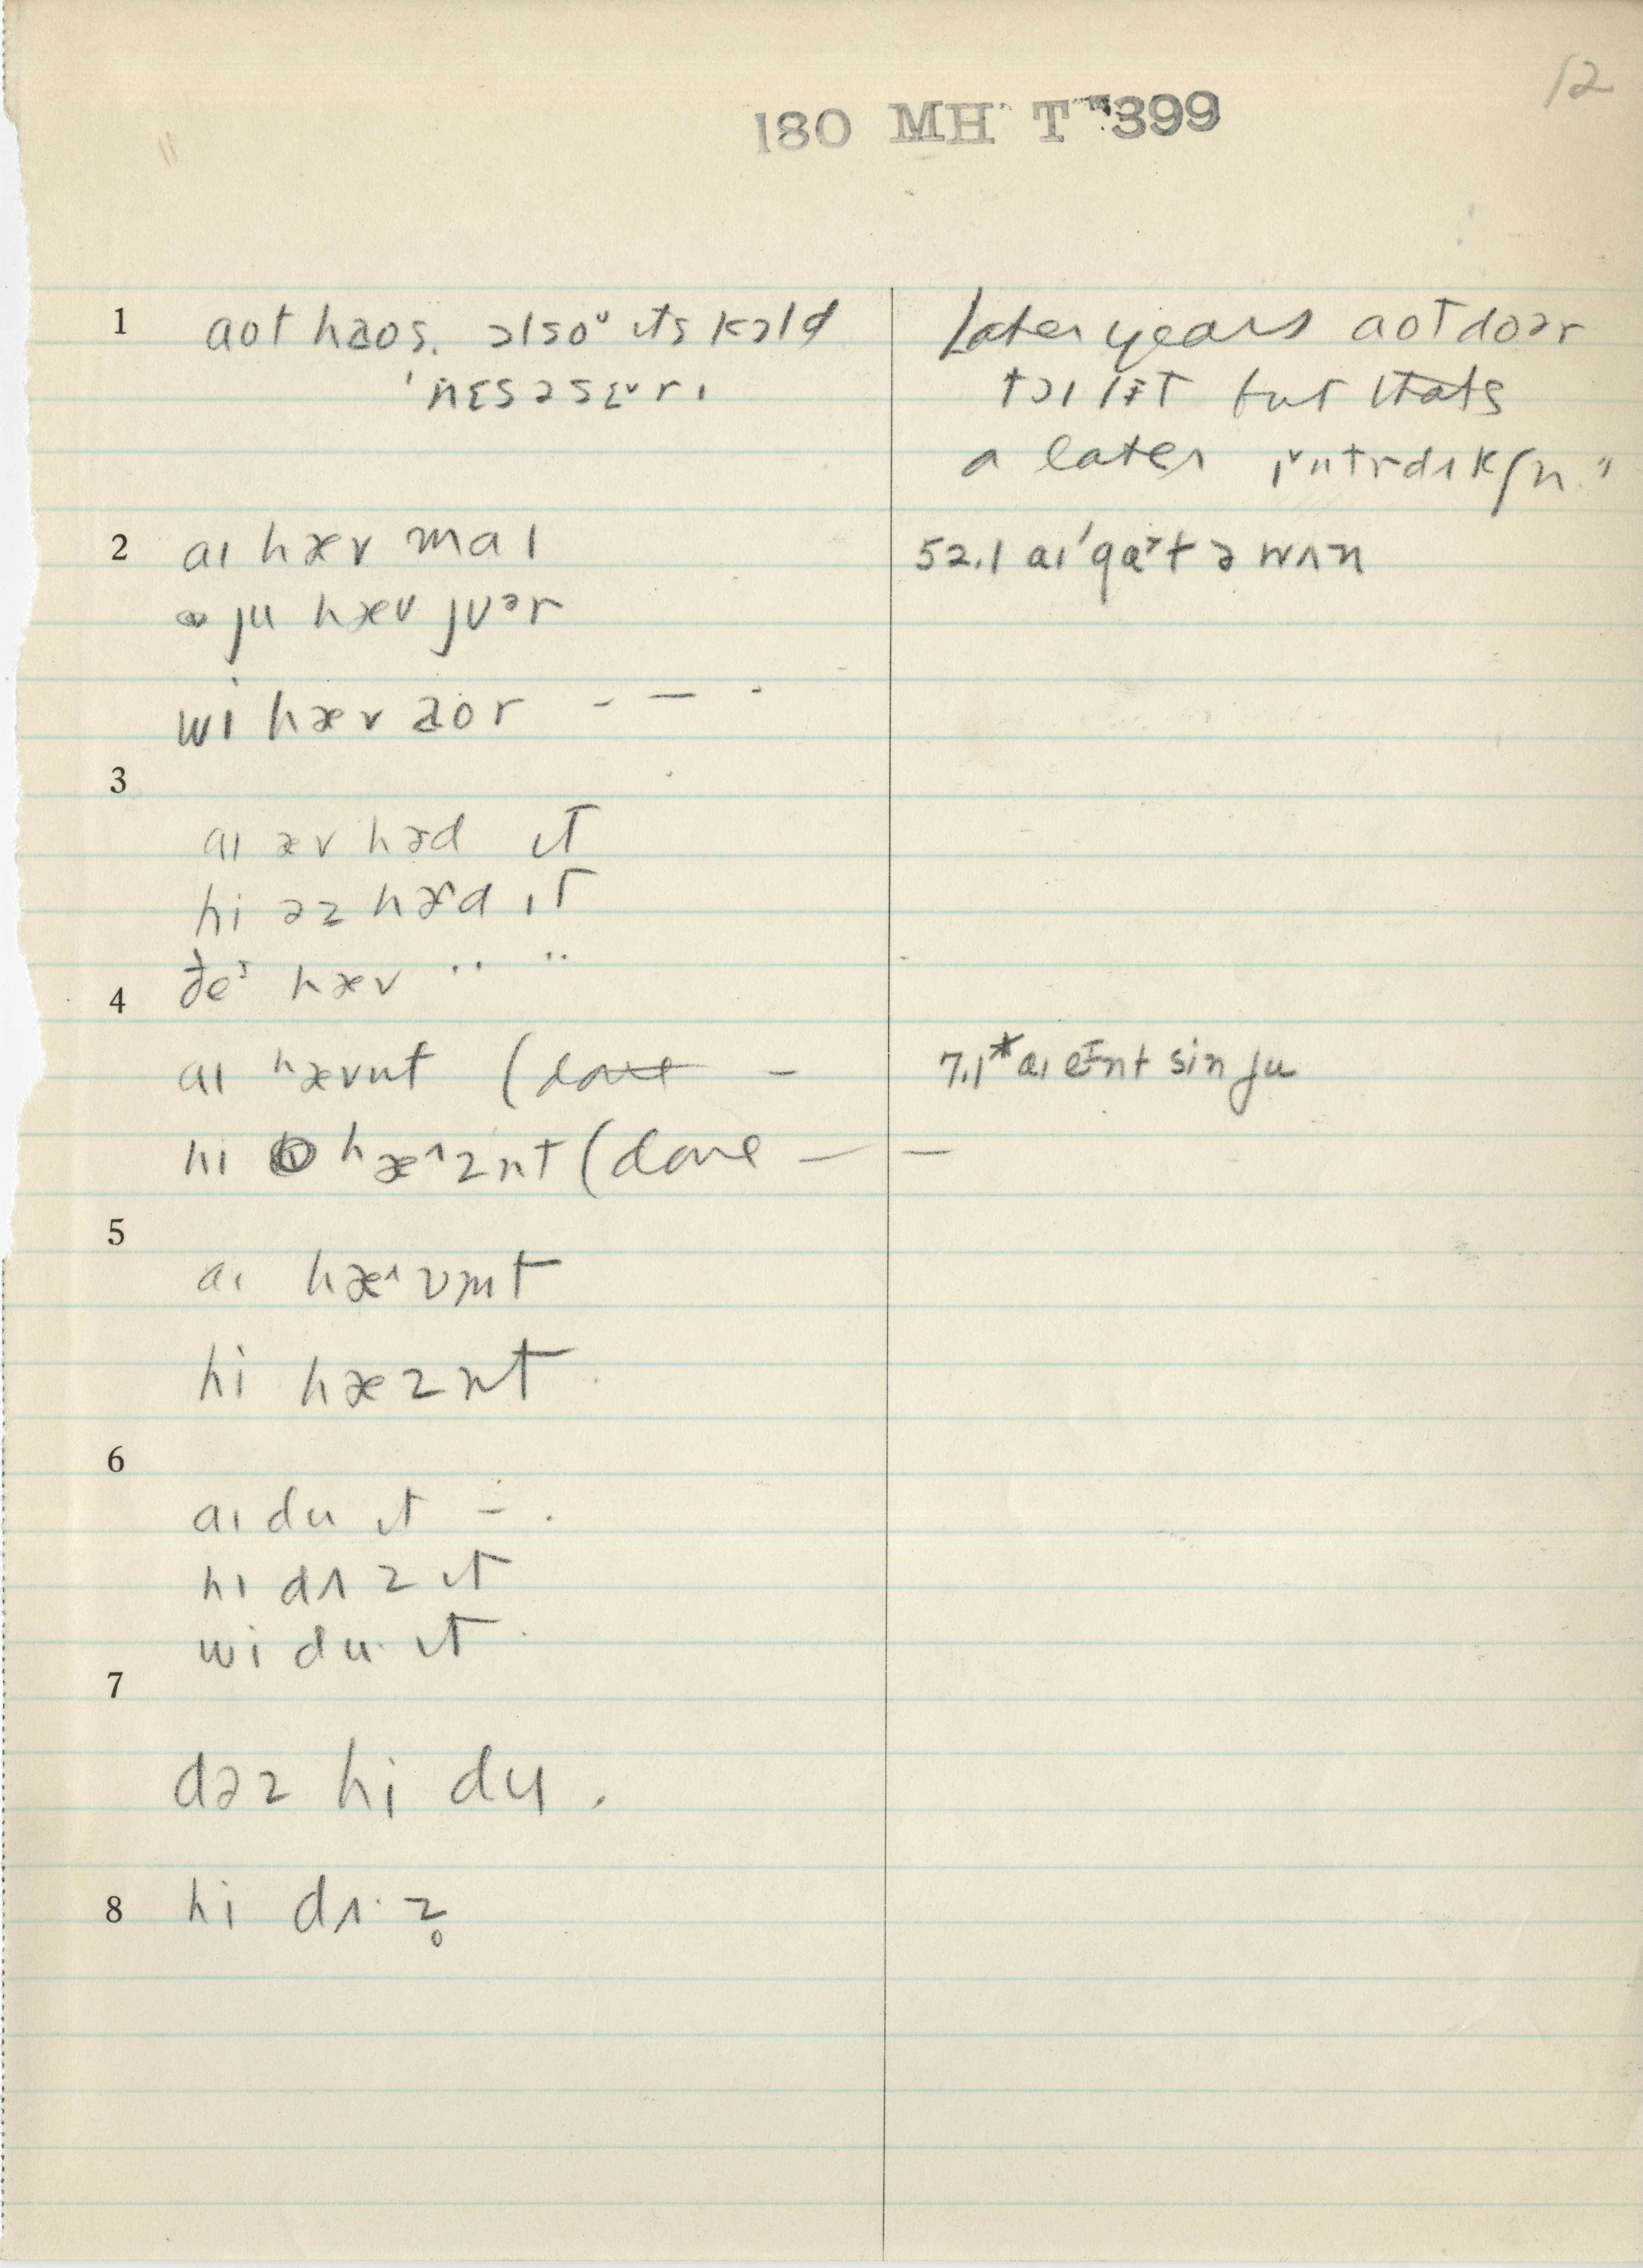 12
180 MH T 399
1 aot haos. ɔlsoᵘ ɪts kɔld
'nɛsəsɛˇrɪ
Later years aotdoər
tɔɪlɨt but thats
a later ɪˇntrdʌkʃn."
2 aɪ hæv maɪ
ju hæv jʊər
wi hæv aor - — -
52.1 aɪ'gɑ˃t ə wʌn
3
aɪ əv hæd ɪt
hi əz hæd ɪt
ðeᶦ hæv " "
4
aɪ hævnt (done —
7.1* aɪ eᶦnt sin ju
hi hæ^znt (done — —
5
aɪ hæ^vmt
hi hæznt
6
aɪ du ɪt - .
hɪ dʌz ɪt
wi du· ɪt
7
dəz hi du.
8 hi dʌ·z̥